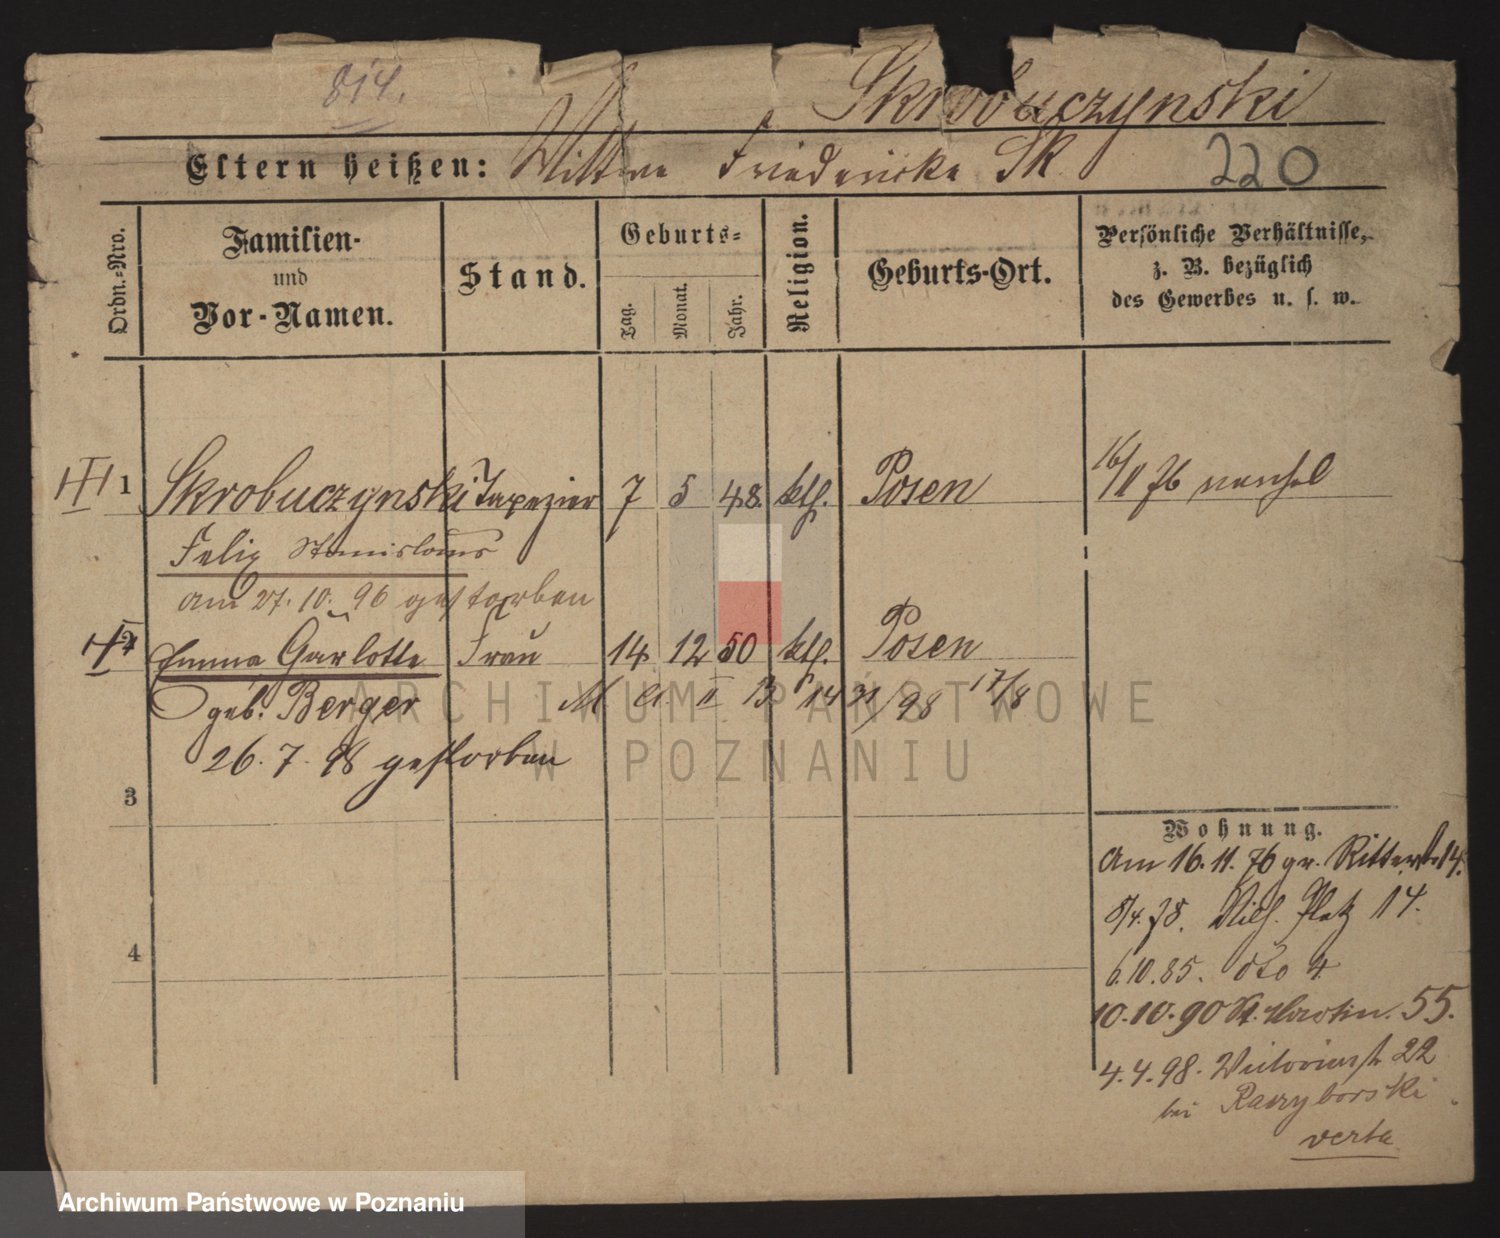 814.
Skrobuczynski
Eltern heißen: Wittwe Friedericke Sk
220
Ordn.-Nro.
Familien-
und
Vor-Namen.
Stand.
Geburts-
Tag.
Monat.
Jahr.
Religion.
Geburts-Ort.
Persönliche Verhältnisse,
z. B. bezüglich
des Gewerbes u. s. w.
1 Skrobuczynski Tapezier 7 5 48. kth. Posen 16/11 76
Felix Stanislaus
am 27. 10. 96 gestorben
2 Emma Garlotte Frau 14 12 50 kth. Posen
geb. Berger
17/8
26. 7. 98 gestorben
3
4
Wohnung.
Am 16. 11. 76 gr. Ritterstr 14.
8/4. 78. Wilh. Platz 14.
6. 10. 85. dto 4
10. 10. 90 St. Martin. 55.
4. 4. 98. Victoriastr 22
bei Raczyborski
verte
ARCHIWUM PAŃSTWOWE
W POZNANIU
Archiwum Państwowe w Poznaniu